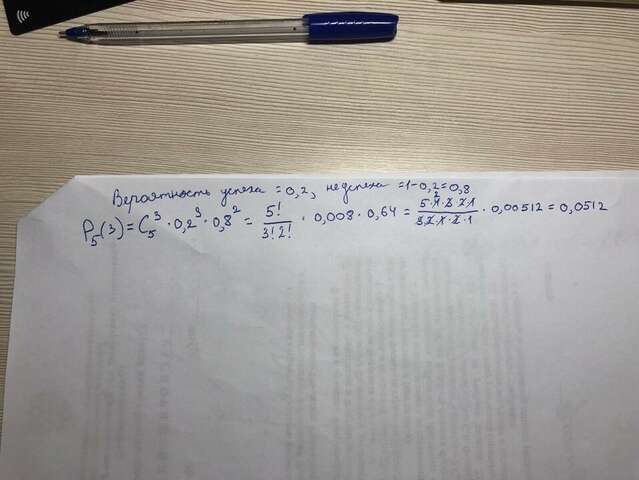 Вероятность успеха = 0,2, неуспеха = 1-0,2=0,8
P₅(3) = C₅³ · 0,2³ · 0,8² = 5!/3!2! · 0,008 · 0,64 = 5·4·3·2·1/3·2·1·2·1 · 0,00512 = 0,0512